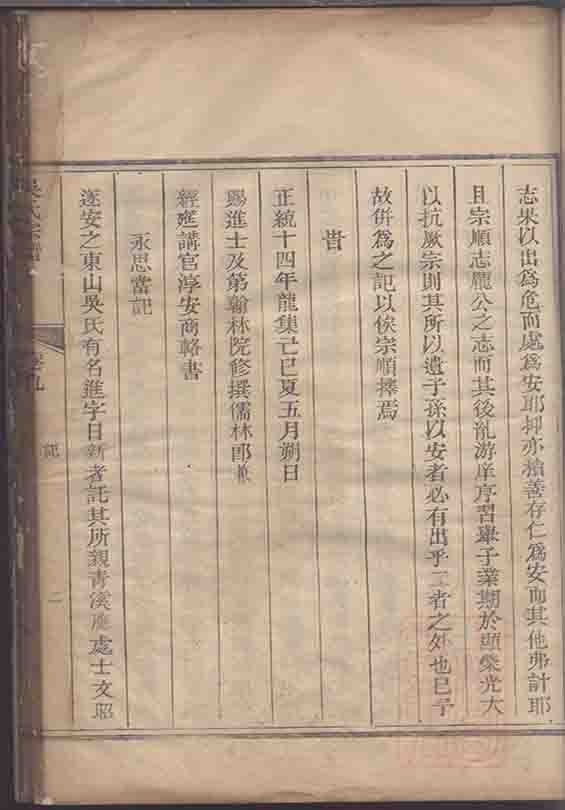 志果以出為危而處為安耶抑亦積善存仁為安而其他弗計耶
且宗順志龐公之志而其後乩游庠序習舉子業期於顯榮光大
以抗厥宗則其所以遺子孫以安者必有出乎二者之外也已予
故併為之記以俟宗順擇焉
旹
正統十四年龍集己巳夏五月朔日
賜進士及第翰林院修撰儒林郎
經筵講官淳安商輅書
永思堂記
遂安之東山吳氏有名進字日新者託其所親青溪處士文昭
吳氏宗譜
卷九
記
二